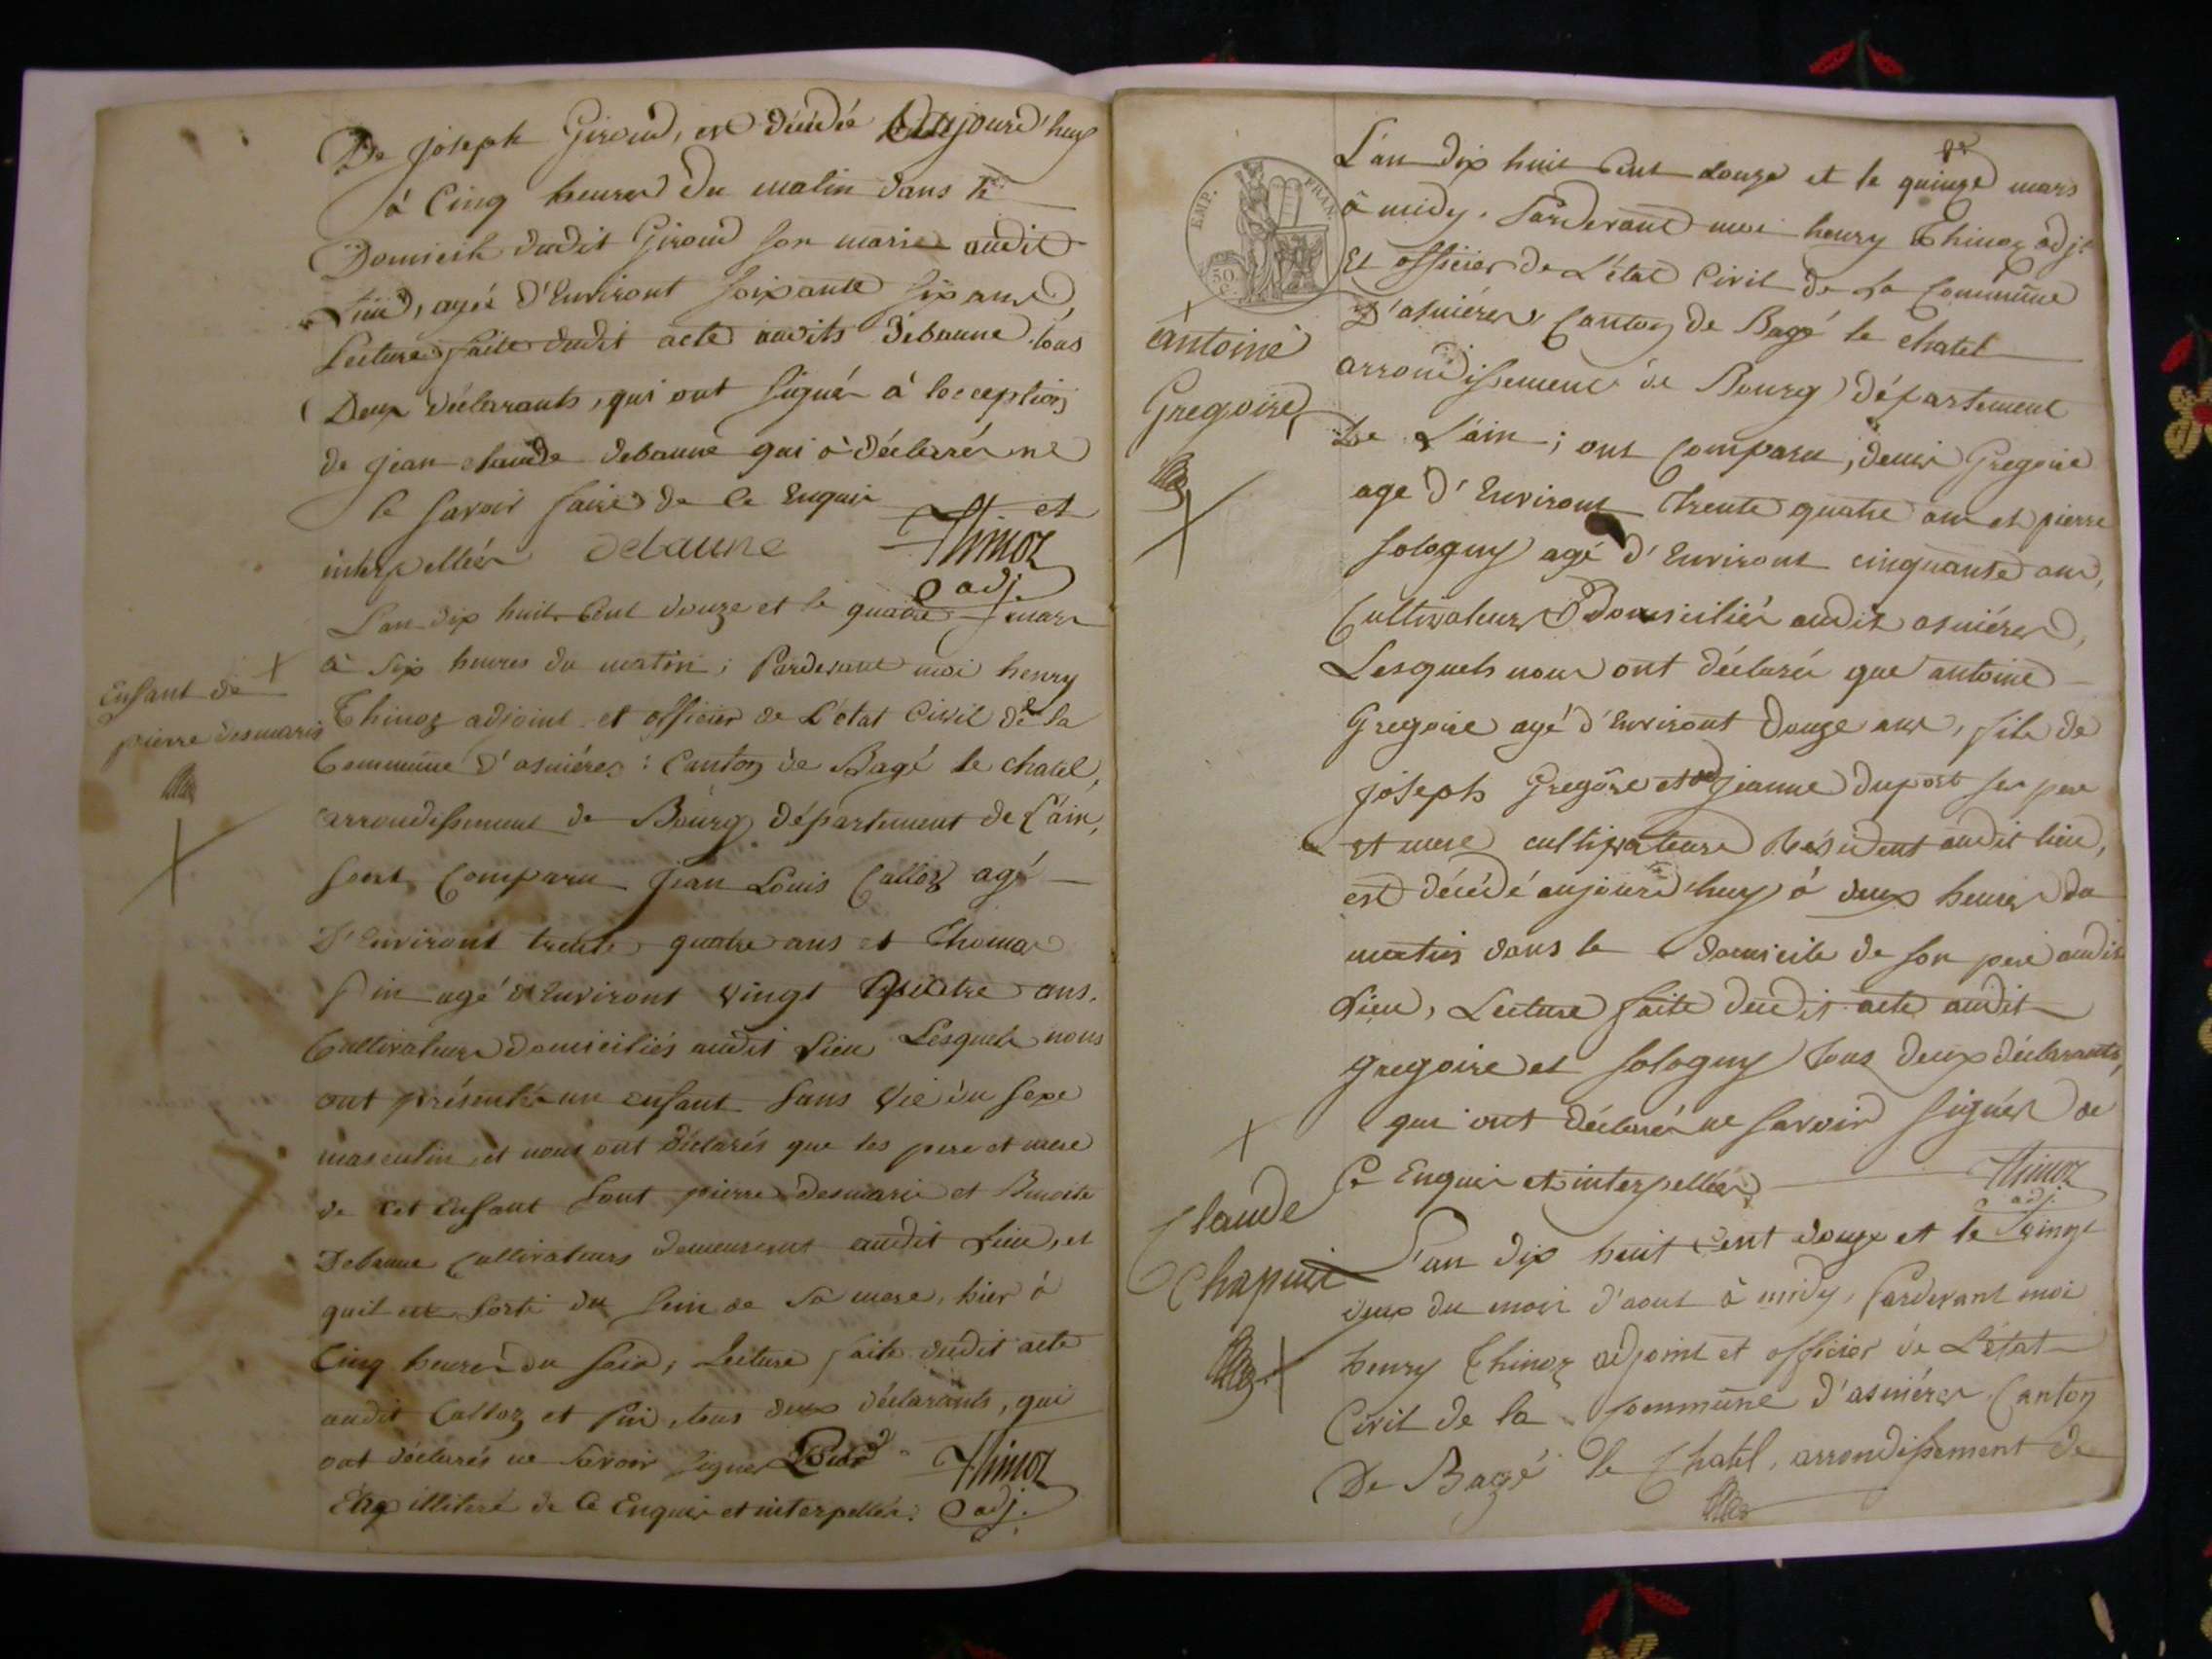 De joseph Giroud, est décédé aujourd'huy
à Cinq heures du matin dans le
Domicile dudit Giroud son marie audit
Lieu, agée d'Environt soixante six ans
Lecture faite dudit acte audits debaune tous
Deux déclarants, qui ont signés à lecception
de jean claude debaune qui à déclarés ne
le savoir faire de ce Enquis et
interpellés debaune Thinoz
adj.
L'an dix huit Cent douze et le quatre mars
à six heures du matin; Pardevant moi henry
Enfant de
pierre desmaris
Thinoz adjoint et officier de L'état Civil de la
Commune d'asniéres: Canton de Bagé le chatel,
arrondissement de Bourg département de L'ain,
sont Comparu Jean Louis Calloz agé
D'Environt trente quatre ans et Thomas
Pin agé d'Environt vingt quatre ans.
Cultivateurs domiciliés audit Lieu Lesquels nous
ont présentés un enfant sans vie du sexe
masculin, et nous ont déclarés que les pere et mere
de cet Enfant sont pierre desmaris et Benoite
Debaune Cultivateurs demeurent audit Lieu, et
quil est sorti du sein de sa mere, hier à
Cinq heures du soir; Lecture faite dudit acte
audit Calloz et Pin, tous deux déclarants, qui
ont déclarés ne savoir signer Thinoz
illiteré de Ce Enquis et interpellés. adj.
EMP. FRAN.
50 C.
L'an dix huit Cent douze et le quinze mars
à midy. Pardevant moi henry Thinoz adjt
Et officier de L'état Civil de La Commune
D'asniéres, Canton de Bagé le chatel
antoine
Gregoire
arrondissement de Bourg département
De L'ain; ont Comparu, denis Gregoire
age d'Environt trente quatre ans et pierre
sologny agé d'Environt cinquante ans,
Cultivateurs Domiciliés audit asniéres,
Lesquels nous ont déclarés que antoine
Gregoire agé d'Environt Douze ans, fils de
joseph Gregoire et jeanne duport ses pere
et mere cultivateurs Résident audit lieu,
est décédé aujourd'huy à deux heures du
matin dans le domicile de son pere audit
Lieu, Lecture faite dudit acte audit
gregoire et sologny tous deux déclarants,
qui ont déclarés ne savoir signés de
Ce Enquis et interpellés Thinoz
adj.
Claude
Chapuis
L'an dix huit Cent douze et le vingt
deux du mois d'aout à midy, Pardevant moi
henry Thinoz adjoint et officier de L'état
Civil de la Commune d'asniéres Canton
De Bagé le Chatel, arrondissement de